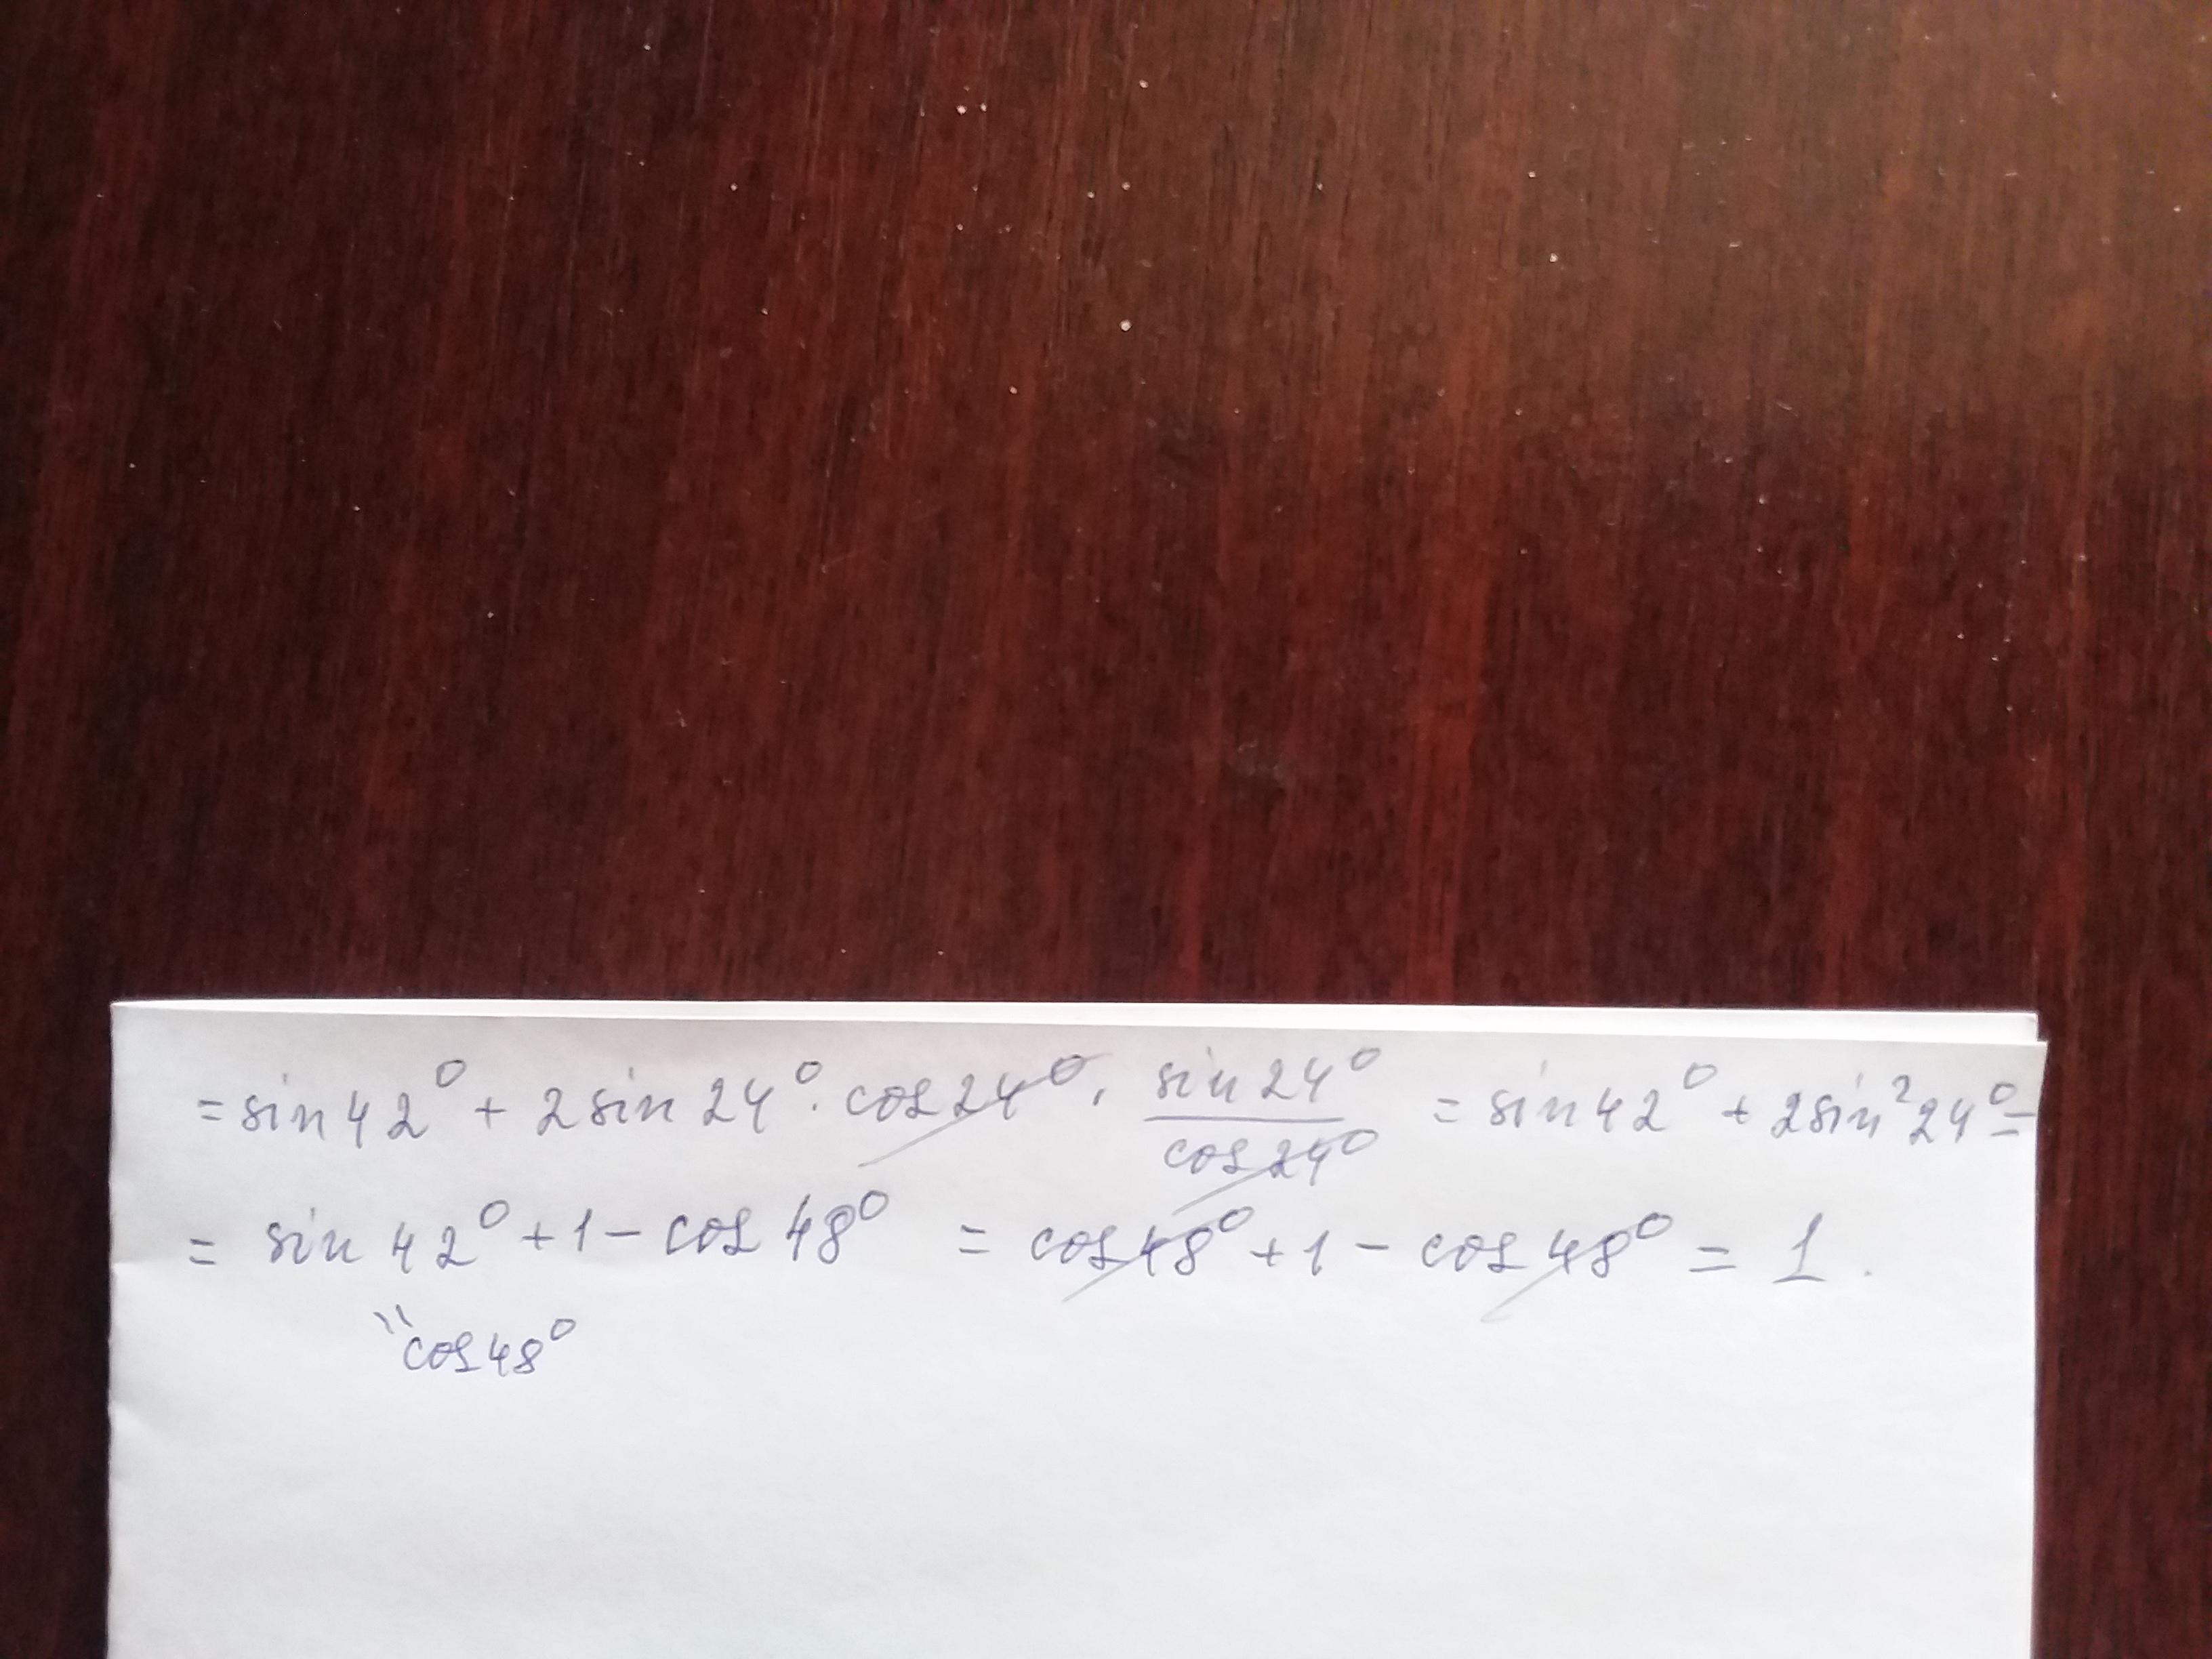 = sin 42° + 2 sin 24° · cos 24° · sin 24° / cos 24° = sin 42° + 2 sin² 24° =
= sin 42° + 1 - cos 48° = cos 48° + 1 - cos 48° = 1.
" cos 48°